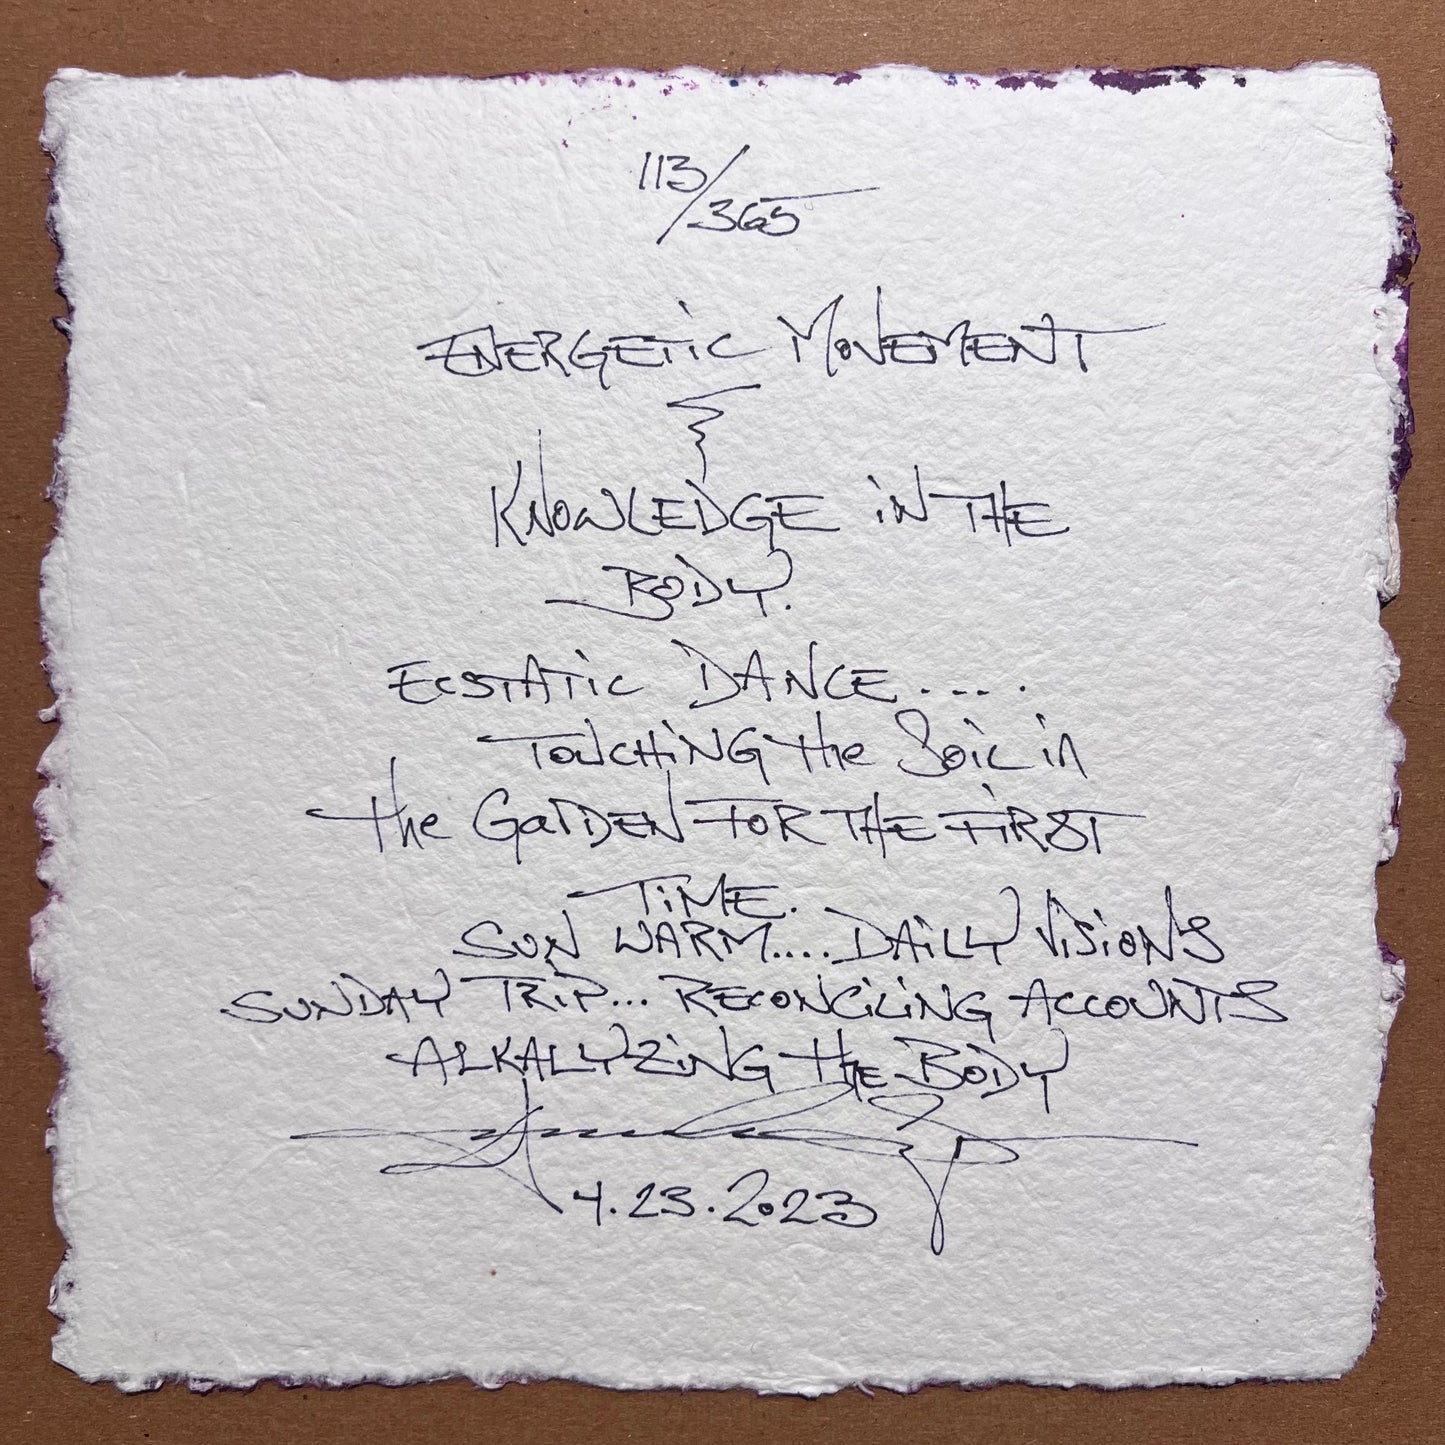 113/365
ENERGETIC MOVEMENT
KNOWLEDGE IN THE
BODY.
ECSTATIC DANCE....
TOUCHING the Soil in
the GaRDEN FOR THE FIRST
TIME.
SUN WARM.... DAILY VISIONS
SUNDAY TRIP... RECONCILING ACCOUNTS
ALKALYZING tHE BODY
4.23.2023